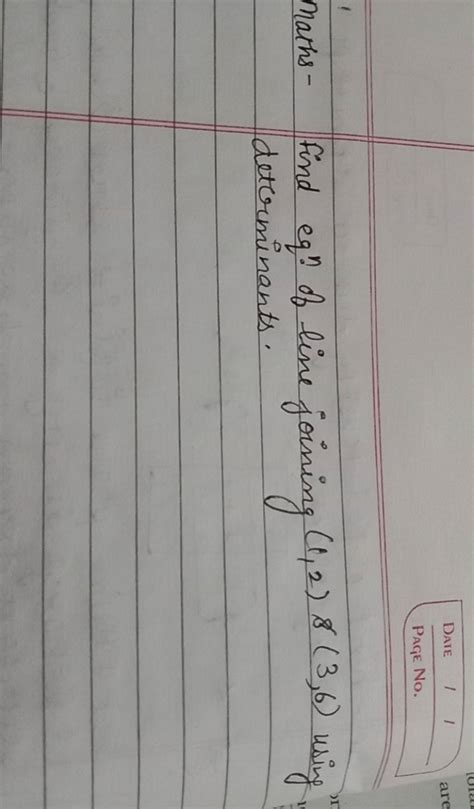 DATE / /
PAGE No.
Maths - find eqn of line joining (1,2) & (3,6) using
determinants.
are